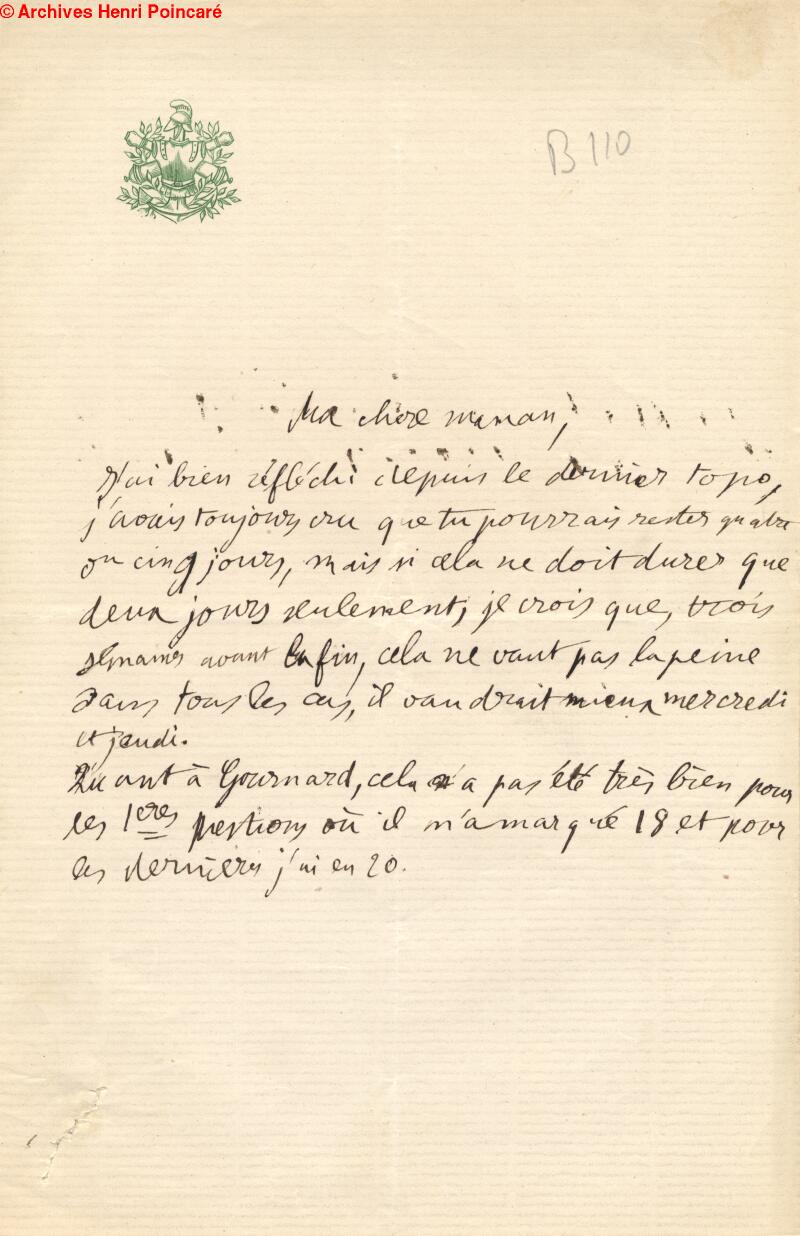 © Archives Henri Poincaré
B 110
Ma chère maman,
J'ai bien réfléchi depuis le dernier topo,
j'avais toujours cru que tu pourrais rester quatre
ou cinq jours, mais si cela ne doit durer que
deux jours seulement, je crois que, trois
semaines avant la fin, cela ne vaut pas la peine
Dans tous les cas, il vaudrait mieux mercredi
et jeudi.
Quant à Gournard, cela n'a pas été très bien pour
les 1eres questions où il m'a marqué 18 et pour
les dernières j'ai eu 20.